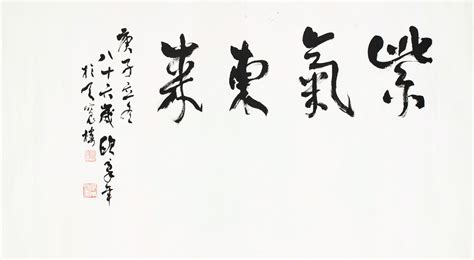 紫氣東來
庚子立冬
八十六歲歐豪年
於天寬樓